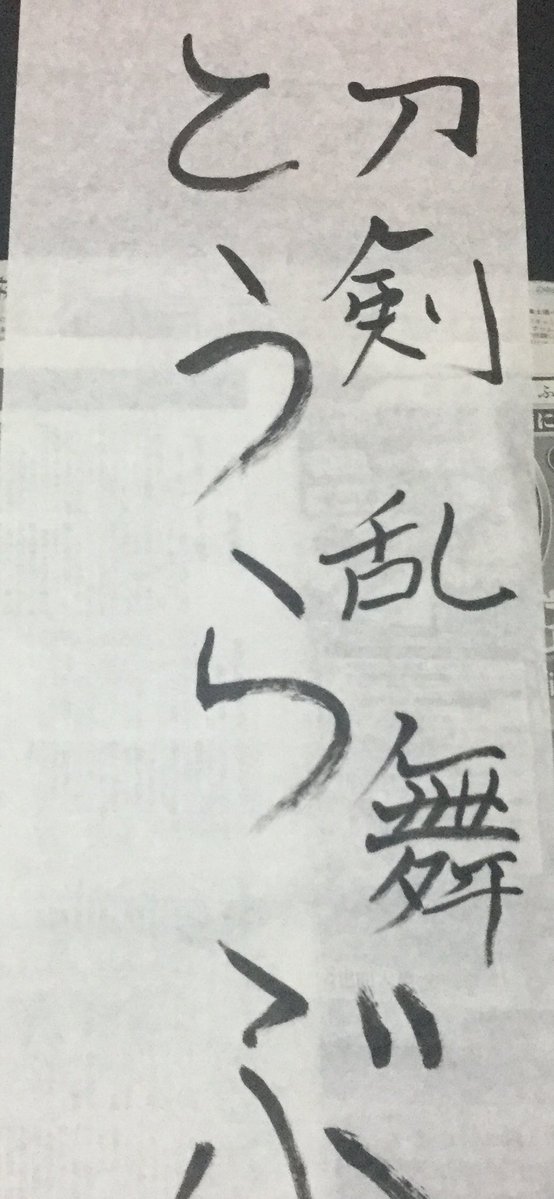 刀剣乱舞
とうらぶ